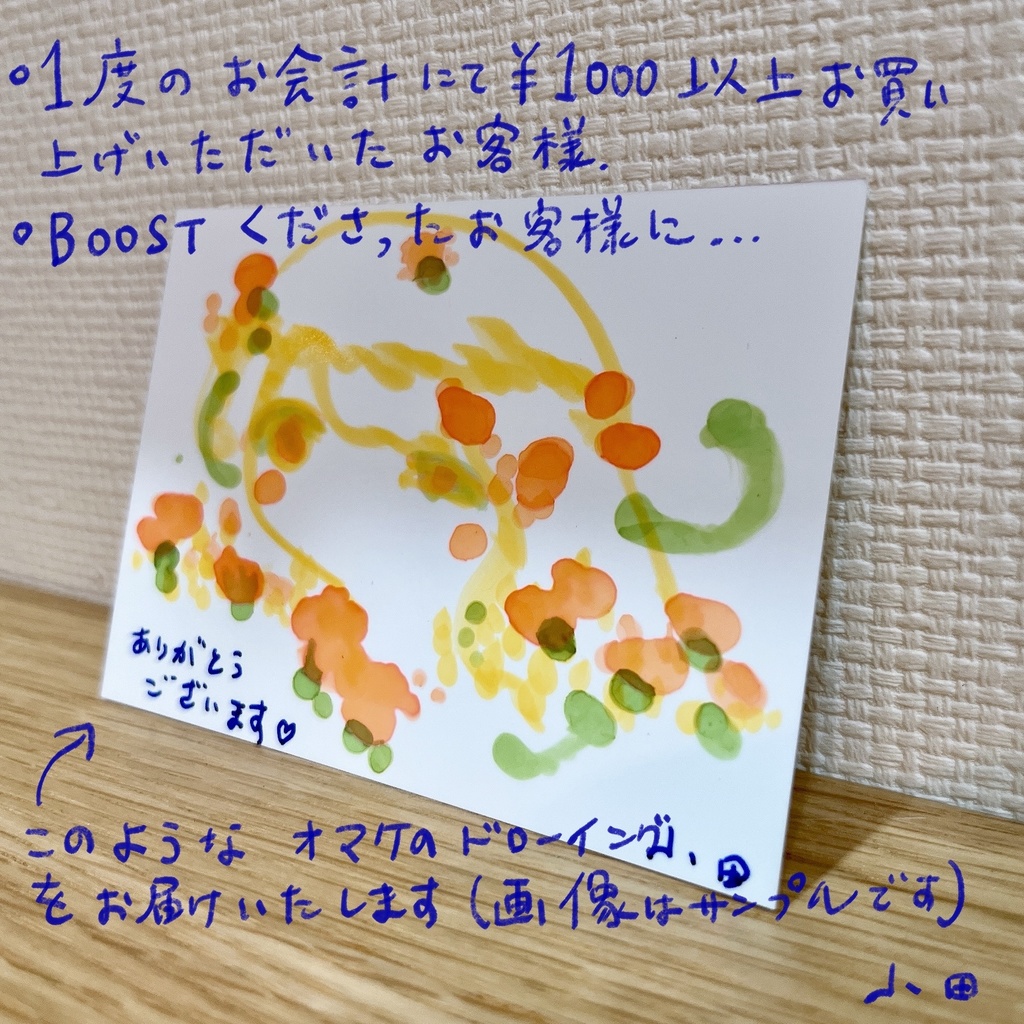 •1度のお会計にて¥1000以上お買い
上げいただいたお客様.
•BOOSTくださったお客様に...
ありがとう
ございます♡
このような オマケのドローイング
をお届けいたします(画像はサンプルです)
小田